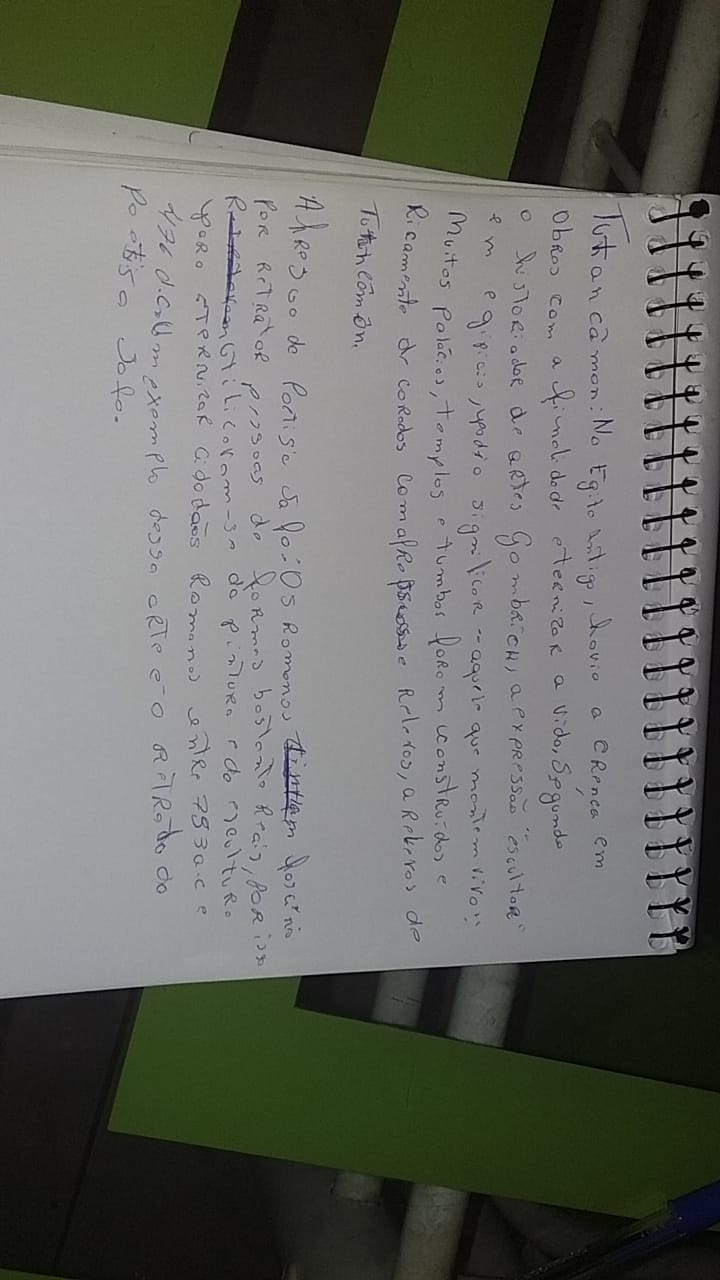 Tutancâmon: No Egito antigo, havia a crença em
obras com a finalidade eternizar a vida, Segundo
o historiador de artes Gombrich, a expressão "escultor"
em egípicio, podia significar "aquele que mantem vivo".
Muitos palácios, templos e tumbas foram construídos e
Ricamente decorados com afrescos e Relevos, a Relevos de
Tutancâmon.
Afresco de Poetisa Safo: Os Romanos fascínio
por retratar pessoas de formas bastante Reais, por isso
utilizavam-se da pintura e da escultura
para eternizar cidadãos Romanos entre 753 a.c e
476 d.C. Um exemplo dessa arte é o Retrato da
Poetisa Safo.